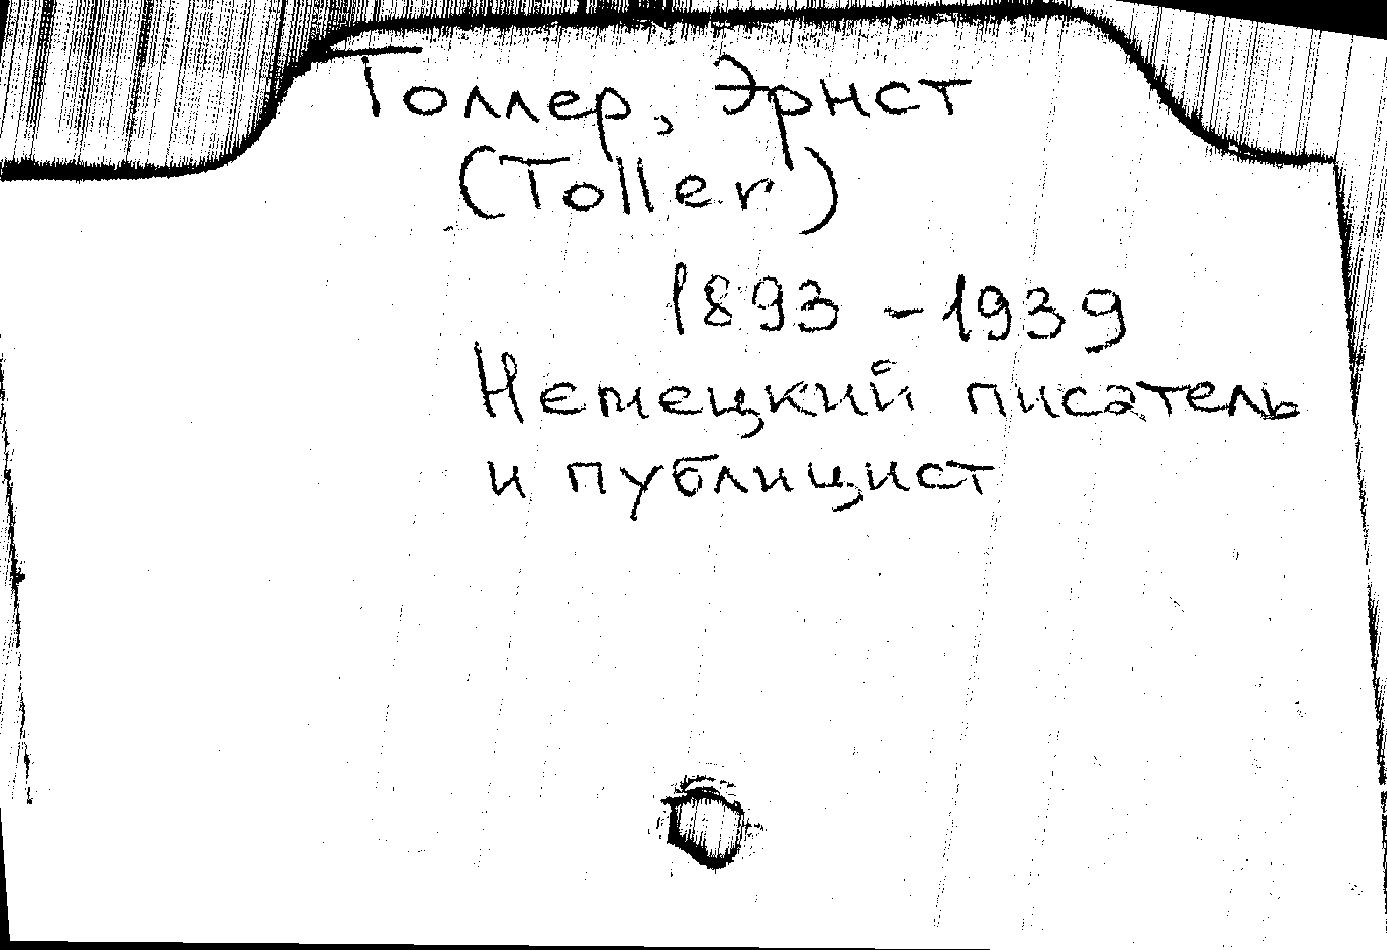 Толлер, Эрнст
(Toller)
1893 - 1939
Немецкий писатель
и публицист